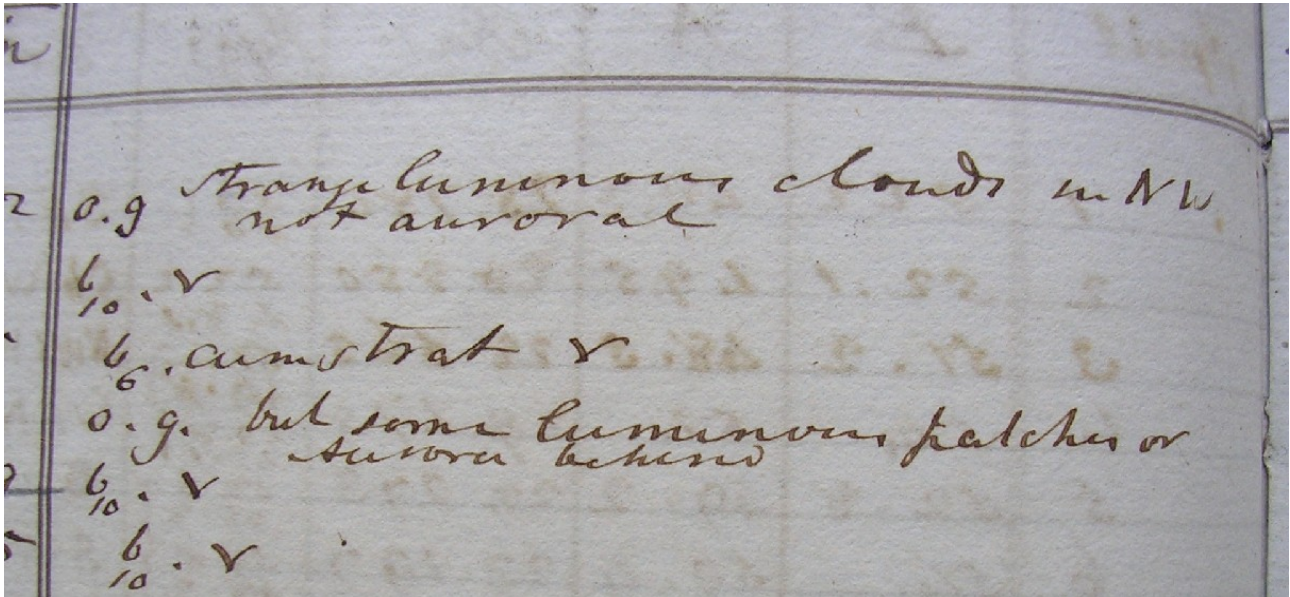 strange luminous clouds in NW
o.g not auroral
b
10 . v
b
6 . cumstrat v
o. g. but some luminous patches or
Aurora behind
b
10 . v
b
10 . v